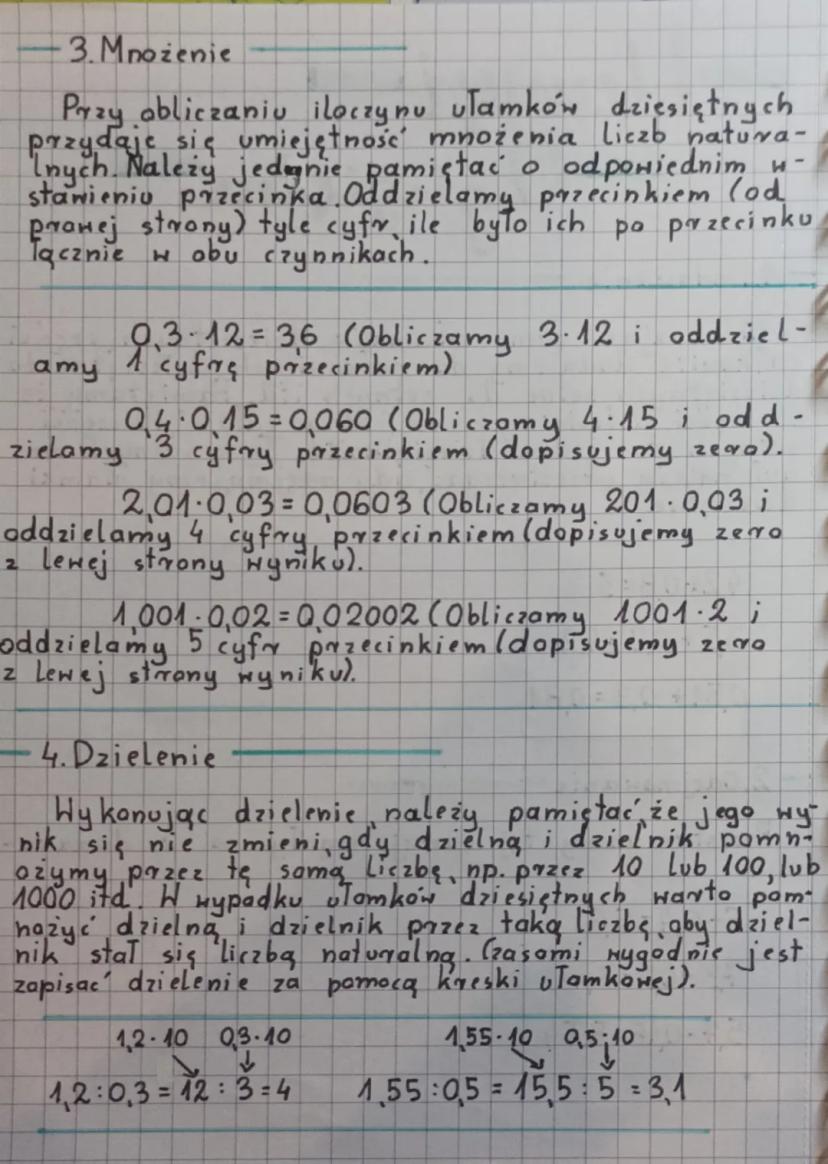 3. Mnożenie
Przy obliczaniu iloczynu ułamków dziesiętnych
przydaje się umiejętność mnożenia liczb natura-
lnych. Należy jedynie pamiętać o odpowiednim w-
stawieniu przecinka. Oddzielamy przecinkiem (od
prawej strony) tyle cyfr, ile było ich po przecinku
łącznie w obu czynnikach.
0,3·12 = 3,6 (Obliczamy 3·12 i oddziel-
amy 1 cyfrę przecinkiem)
0,4·0,15 = 0,060 (Obliczamy 4·15 i odd-
zielamy 3 cyfry przecinkiem (dopisujemy zera).
2,01·0,03 = 0,0603 (Obliczamy 201·0,03 i
oddzielamy 4 cyfry przecinkiem (dopisujemy zero
z lewej strony wyniku).
1,001·0,02 = 0,02002 (Obliczamy 1001·2 i
oddzielamy 5 cyfr przecinkiem (dopisujemy zero
z lewej strony wyniku).
4. Dzielenie
Wykonując dzielenie, należy pamiętać, że jego wy-
nik się nie zmieni, gdy dzielną i dzielnik pomn-
ożymy przez tę samą liczbę, np. przez 10 lub 100, lub
1000 itd. W wypadku ułamków dziesiętnych warto pom-
nożyć dzielną i dzielnik przez taką liczbę, aby dziel-
nik stał się liczbą naturalną. (Czasami wygodnie jest
zapisać dzielenie za pomocą kreski ułamkowej).
1,2·10 0,3·10 1,55·10 0,5·10
1,2 : 0,3 = 12 : 3 = 4 1,55 : 0,5 = 15,5 : 5 = 3,1